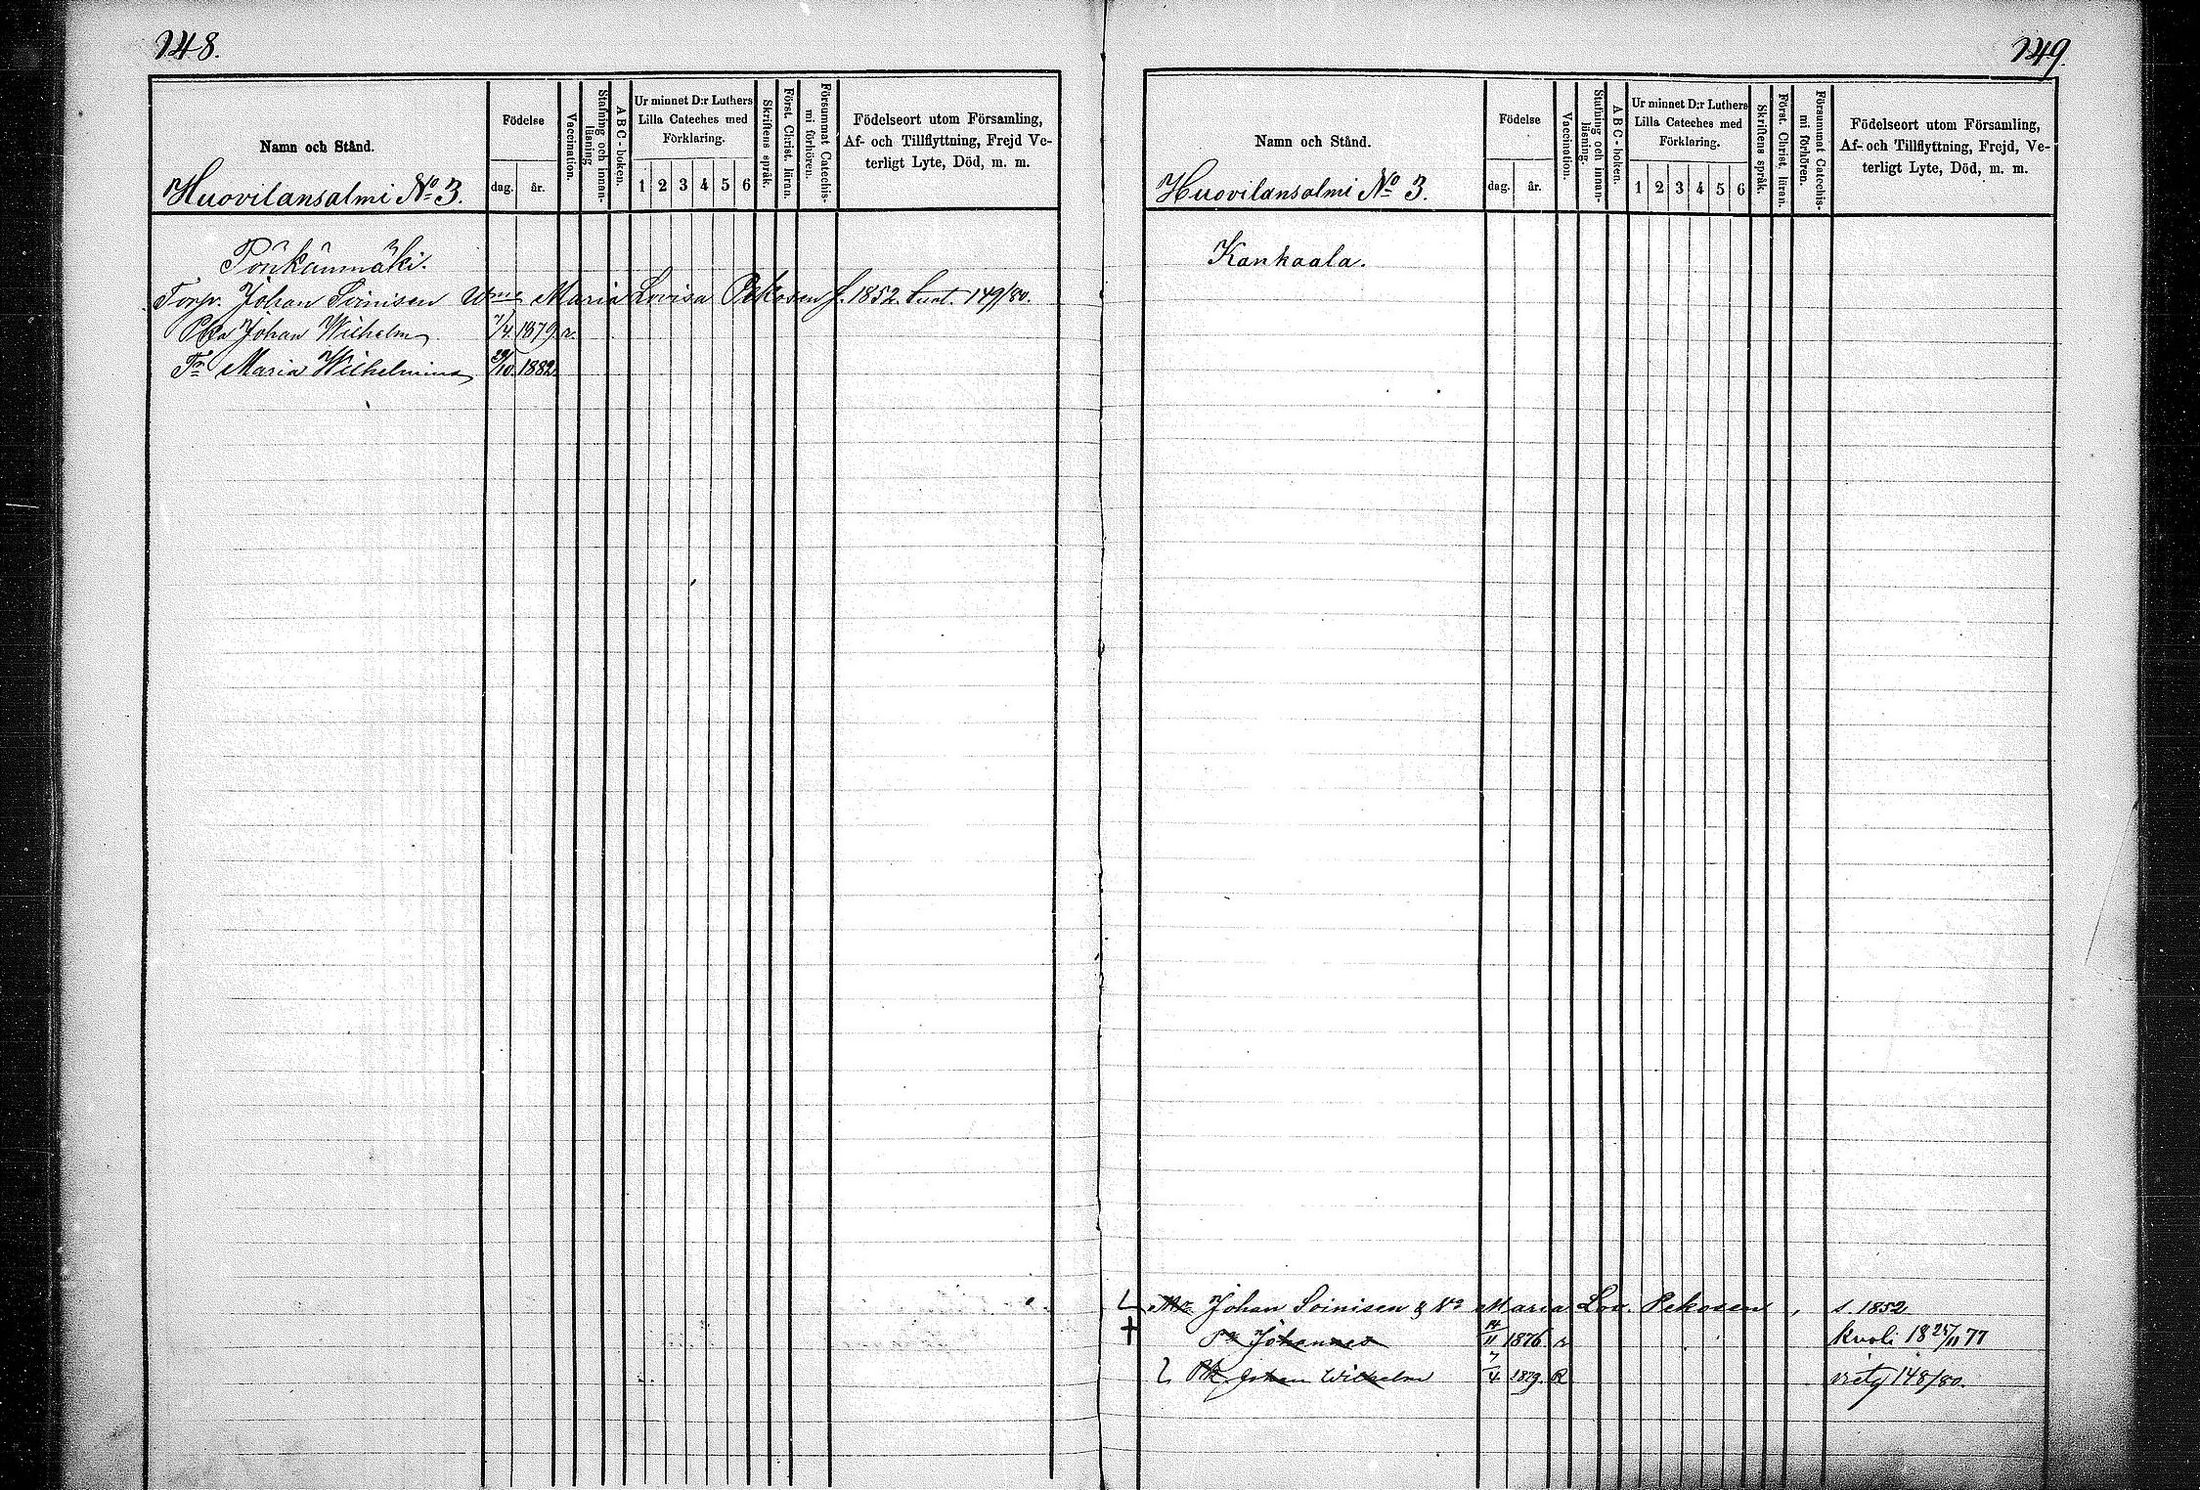 148.
Namn och Stånd.
Födelse
dag.
år.
Vaccination.
Stafning och innan-
läsning
ABC-boken.
Ur minnet D:r Luthers
Lilla Cateches med
Förklaring.
1 2 3 4 5 6
Skriftens språk.
Först. Christ. läran.
Försummat Catechis-
mi förhören.
Födelseort utom Församling,
Af- och Tillflyttning, Frejd Ve-
terligt Lyte, Död, m. m.
Huovilansalmi No 3.
Pönkänmäki.
Torp. Johan Soinisen Maria Lovisa Pekosen f. 1852. 149/80.
Johan Wilhelm 7/4 1879 r.
Tr Maria Wilhelmina 29/10 1882
149.
Namn och Stånd.
Födelse
dag.
år.
Vaccination.
Stafning och innan-
läsning.
ABC-boken.
Ur minnet D:r Luthers
Lilla Cateches med
Förklaring.
1 2 3 4 5 6
Skriftens språk.
Först. Christ. läran.
Försummat Catechis-
mi förhören.
Födelseort utom Församling,
Af- och Tillflyttning, Frejd, Ve-
terligt Lyte, Död, m. m.
Huovilansalmi No 3.
Kankaala.
Johan Soinisen & Maria Lov. Pekosen, s. 1852
Johannes 14/11 1876 r kuoli 18 25/11 77
Johan Wilhelm 7/4 1879. R 148/80.